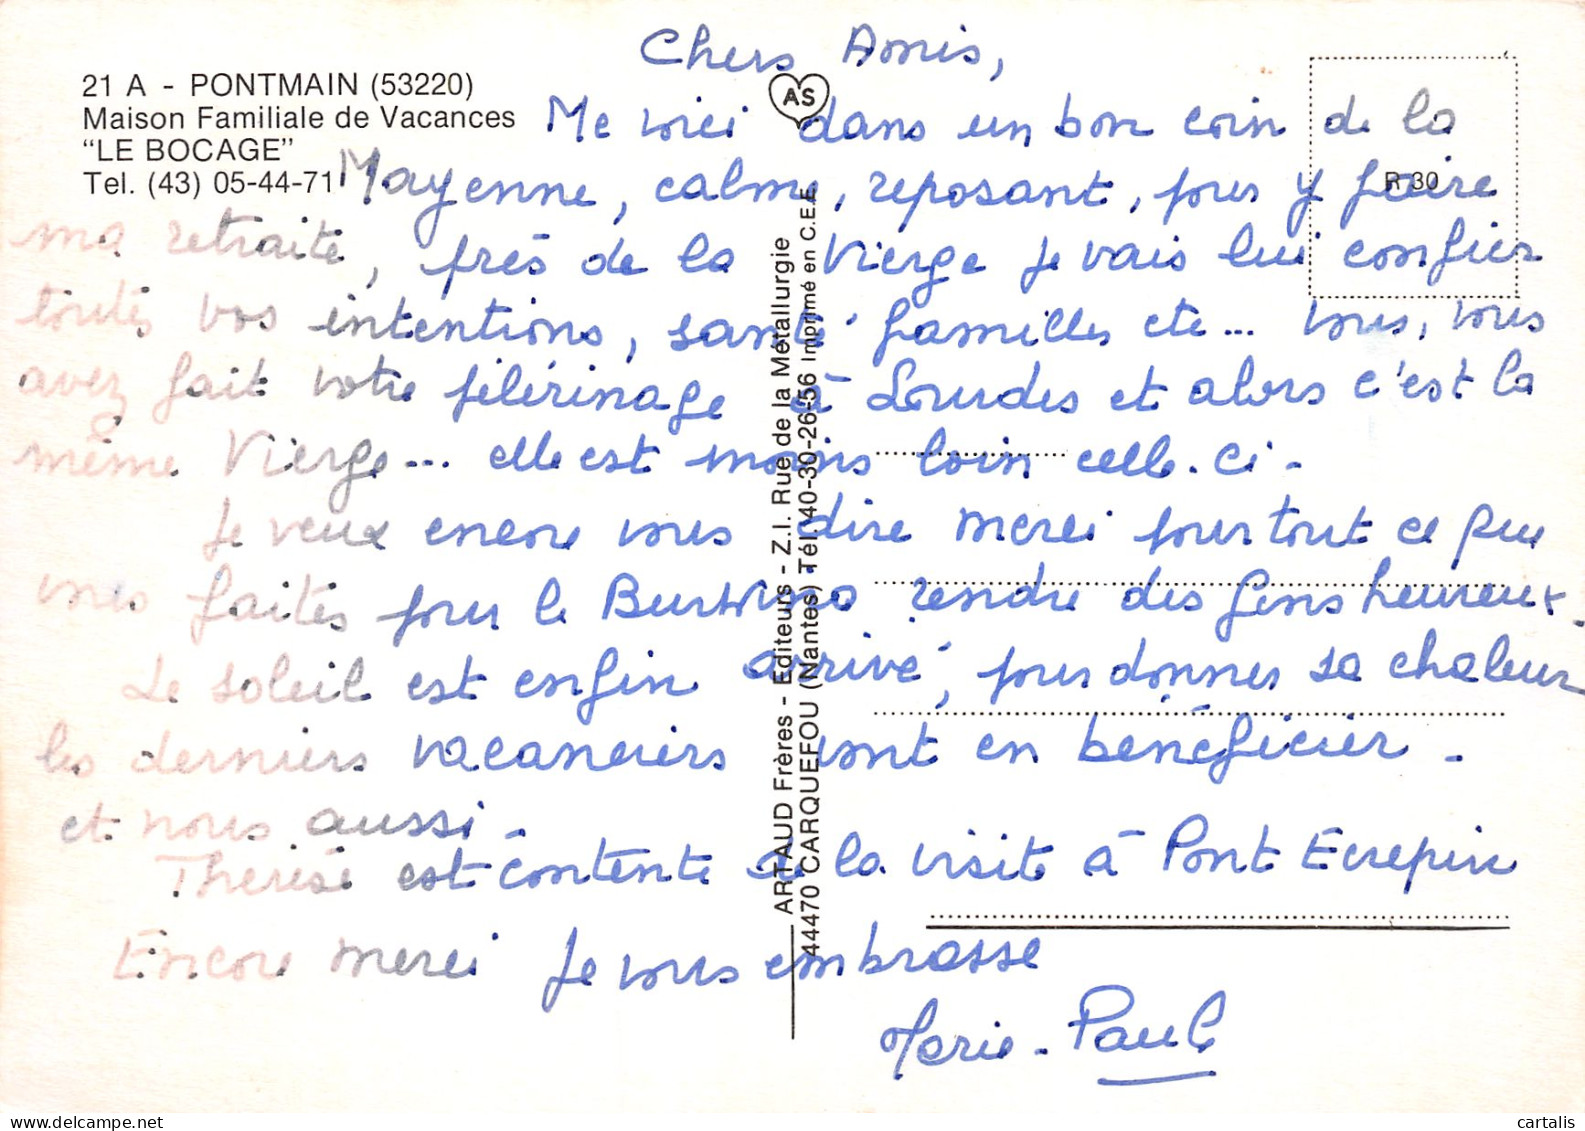 Chers Amis,
21 A - PONTMAIN (53220)
Maison Familiale de Vacances
"LE BOCAGE"
Tel. (43) 05-44-71
AS
R 30
Me voici dans un bon coin de la
Mayenne, calme, reposant, pour y faire
ma retraite, près de la Vierge je vais lui confier
toutes vos intentions, santé familles etc... vous, vous
avez fait votre pélérinage à Lourdes et alors c'est la
même Vierge... elle est moins loin celle-ci -
Je veux encore vous dire merci pour tout ce que
vous faites pour le rendre des gens heureux.
Le soleil est enfin arrivé, pour donner sa chaleur
les derniers vacanciers vont en bénéficier -
et nous aussi -
Thérèse est contente de la visite à Pont Ecrepin
Encore merci je vous embrasse
Marie-Paule
ARTAUD Frères - Editeurs - Z.I. Rue de la Métallurgie
44470 CARQUEFOU (Nantes) Tél. 40-30-26-56 Imprimé en C.E.E.
cartalis